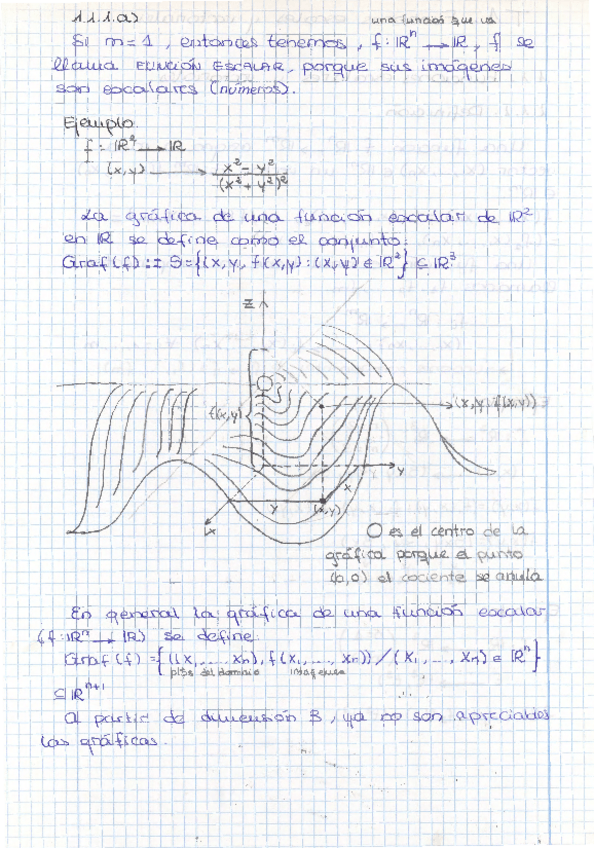 1.1.1.a)
una función que va
Si m=1, entonces tenemos, f: ℝⁿ → ℝ, f se
llama FUNCIÓN ESCALAR, porque sus imágenes
son escalares (números).
Ejemplo.
f: ℝ² → ℝ
(x,y) → x² - y² / (x² + y²)²
La gráfica de una función escalar de ℝ²
en ℝ se define como el conjunto:
Graf(f) := S={(x,y, f(x,y) : (x,y) ∈ ℝ²} ⊆ ℝ³
Z
f(x,y)
(x,y, f(x,y))
y
x
y
(x,y)
x
O es el centro de la
gráfica porque el punto
(0,0) el cociente se anula
En general la gráfica de una función escalar
(f: ℝⁿ → ℝ) se define:
Graf(f) = {((x₁, ..., xₙ), f(x₁, ..., xₙ)) / (x₁, ..., xₙ) ∈ ℝⁿ}
ptos del dominio
⊆ ℝⁿ⁺¹
A partir de dimensión 3, ya no son apreciables
las gráficas.